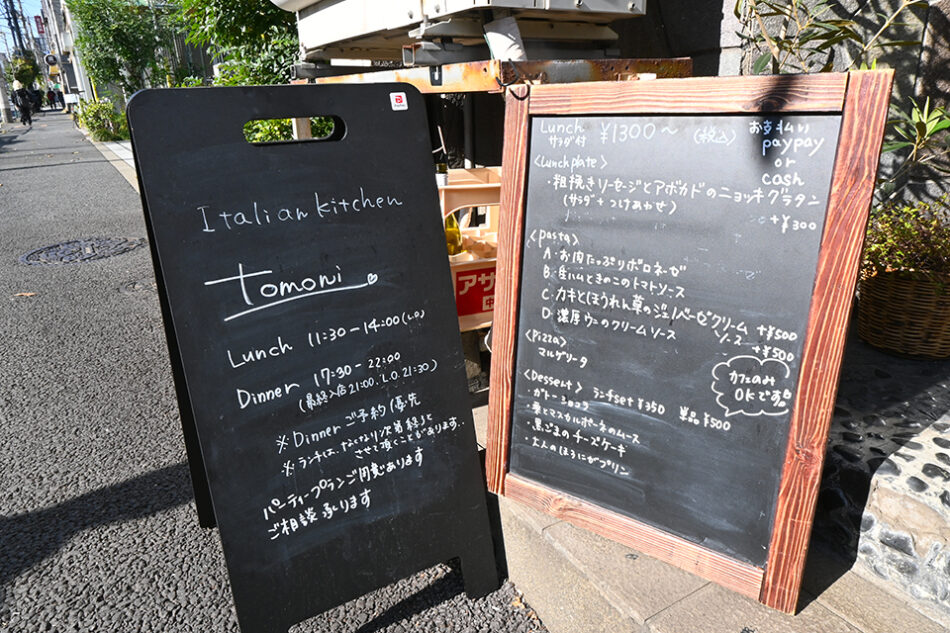 Italian kitchen
Tomoni
Lunch 11:30-14:00(L.O)
Dinner 17:30-22:00
(最終入店21:00. L.O.21:30)
※Dinnerご予約優先
※ランチは、なくなり次第終了と
させて頂くことがあります。
パーティープランご用意あります
ご相談承ります
Lunch ¥1300~ (税込)
サラダ付
お支払い
paypay
or
cash
<Lunch plate>
・粗挽きソーセージとアボカドのニョッキグラタン
(サラダ+つけあわせ)
+¥300
<pasta>
A・お肉たっぷりボロネーゼ
B・生ハムときのこのトマトソース
C・カキとほうれん草のジェノベーゼクリーム
ソース +¥500
D・濃厚ウニのクリームソース +¥500
<Pizza>
マルゲリータ
<Dessert> ランチset ¥350 単品 ¥500
・ガトーショコラ
・栗とマスカルポーネのムース
・黒ごまのチーズケーキ
・大人のほろにがプリン
カフェのみ
OKです!
アサ